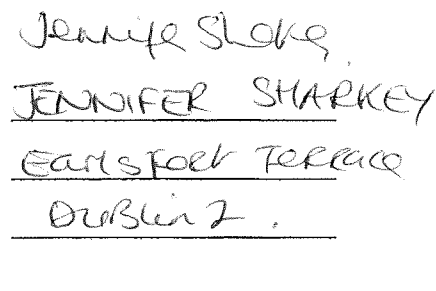 Jennifer Sharkey
JENNIFER SHARKEY
Earlsfort Terrace
Dublin 2.